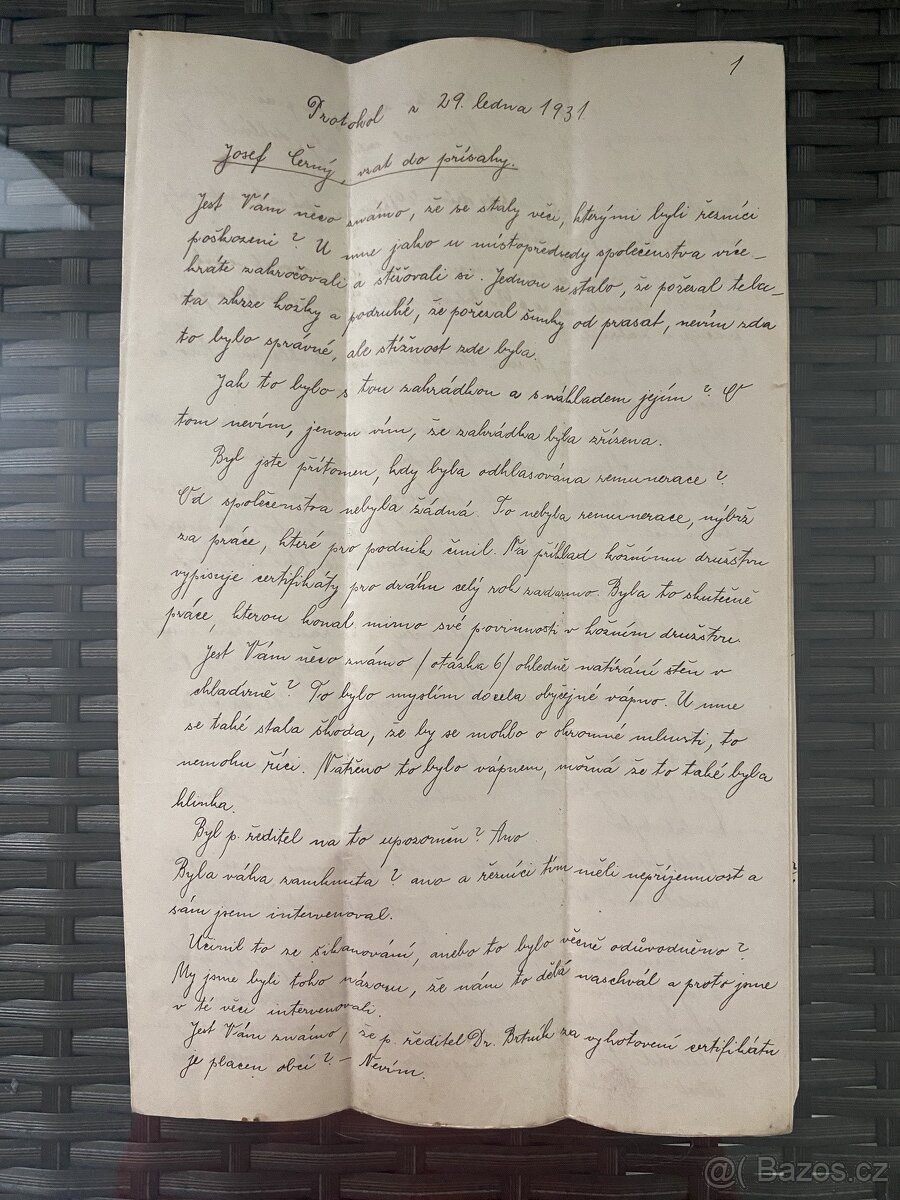 1
Protokol z 29. ledna 1931
Josef Černý, vzat do přísahy.
Jest Vám něco známo, že se staly věci, kterými byli řezníci
poškozeni? U mne jako u místopředsedy společenstva více-
kráte zakročovali a stěžovali si. Jednou se stalo, že pořezal tela-
ta skrze kožky a podruhé, že pořezal šunky od prasat, nevím zda
to bylo správné, ale stížnost zde byla.
Jak to bylo s tou zahrádkou a s nákladem jejím? O
tom nevím, jenom vím, že zahrádka byla zřízena.
Byl jste přítomen, kdy byla odhlasována remunerace?
Od společenstva nebyla žádná. To nebyla remunerace, nýbrž
za práce, které pro podnik činil. Na příklad kožnímu družstvu
vypisuje certifikáty pro dráhu celý rok zadarmo. Byla to skutečně
práce, kterou konal mimo své povinnosti v kožním družstvu.
Jest Vám něco známo /otázka 6/ ohledně natírání stěn v
chladírně? To bylo myslím docela obyčejné vápno. U mne
se také stala škoda, že by se mohlo o ohromné mluviti, to
nemohu říci. Natřeno to bylo vápnem, možná že to také byla
hlinka.
Byl p. ředitel na to upozorněn? Ano
Byla váha zamknuta? ano a řezníci tím měli nepříjemnost a
sám jsem intervenoval.
Učinil to ze šikanování, anebo to bylo věcně odůvodněno?
My jsme byli toho názoru, že nám to dělá naschvál a proto jsme
v té věci intervenovali.
Jest Vám známo, že p. ředitel Dr. Brtník za vyhotovení certifikátu
je placen obcí? - Nevím.
@( Bazos.cz